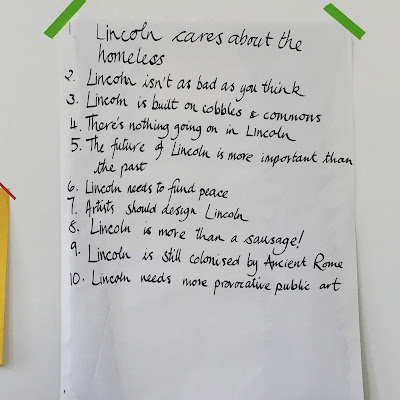 1. Lincoln cares about the
homeless
2. Lincoln isn't as bad as you think
3. Lincoln is built on cobbles & commons
4. There's nothing going on in Lincoln
5. The future of Lincoln is more important than
the past
6. Lincoln needs to fund peace
7. Artists should design Lincoln
8. Lincoln is more than a sausage!
9. Lincoln is still colonised by Ancient Rome
10. Lincoln needs more provocative public art